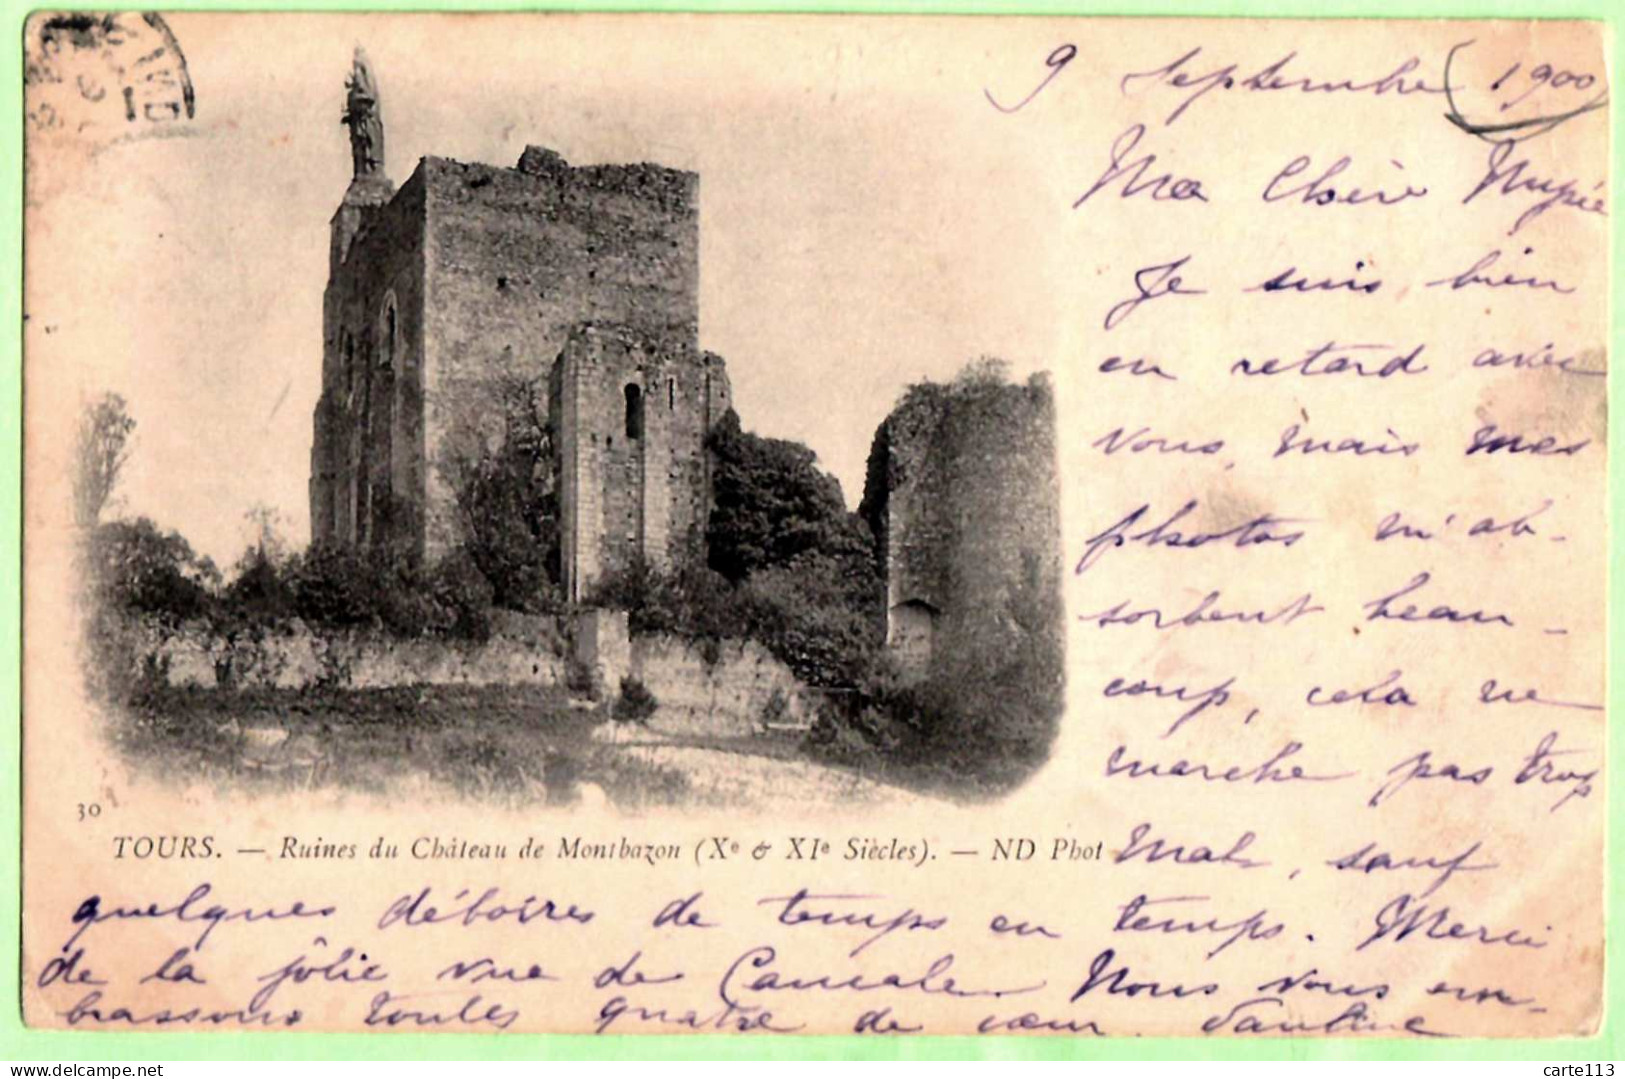 9 Septembre (1900)
Ma Chère
Je suis bien
en retard avec
vous, mais mes
photos m'ab-
sorbent beau-
coup, cela ne
marche pas trop
30
TOURS. — Ruines du Château de Montbazon (Xe & XIe Siècles). — ND Phot
mal, sauf
quelques déboires de temps en temps. Merci
de la jolie vue de Cancale. Nous vous em-
brassons toutes quatre de cœur.
www.delcampe.net
carte113